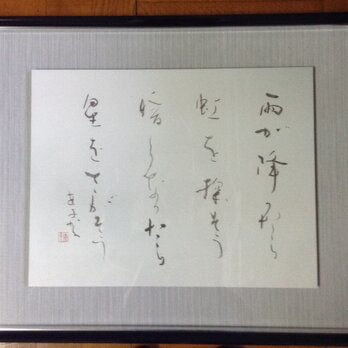 雨が降ったら
虹を探そう
暗くなったら
星をさがそう